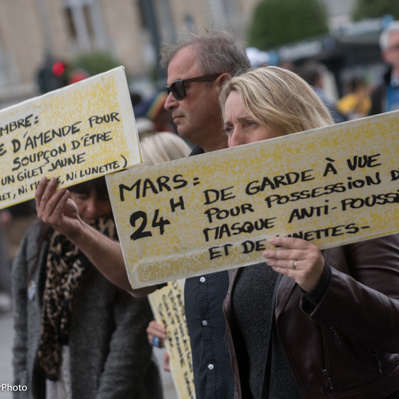 MBRE:
E D'AMENDE POUR
SOUPÇON D'ÊTRE
UN GILET JAUNE
NI LUNETTE)
MARS:
24H DE GARDE À VUE
POUR POSSESSION D
MASQUE ANTI-POUSSI
ET DE LUNETTES-
Photo